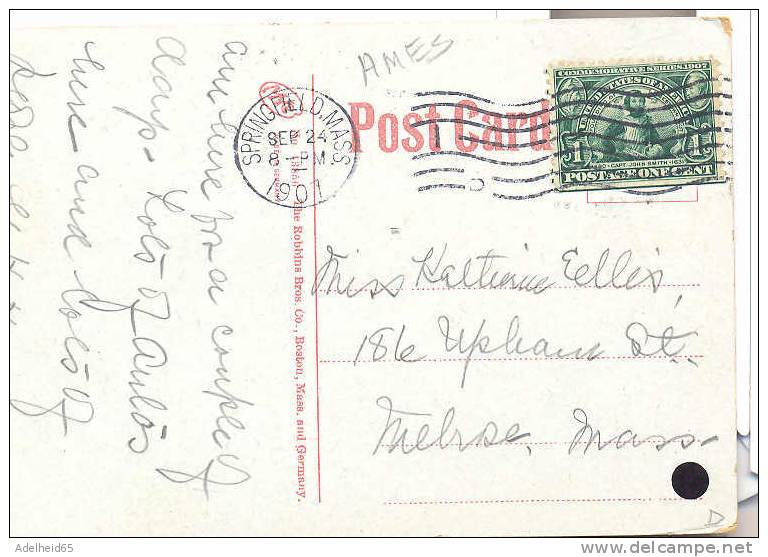 am here for a couple of
days - Lots of autos
here and lots of
AMES
Post Card
SPRINGFIELD, MASS.
SEP 24
8 - PM
1907
COMMEMORATIVE SERIES, 1907
UNITED STATES OF AMERICA
1580 · CAPT. JOHN SMITH · 1631
1 1
POSTAGE ONE CENT
The Robbins Bros. Co., Boston, Mass. and Germany.
Miss Katherine Ellis,
186 Upham St.
Melrose, Mass.
D
Adelheid65
delcampe.net